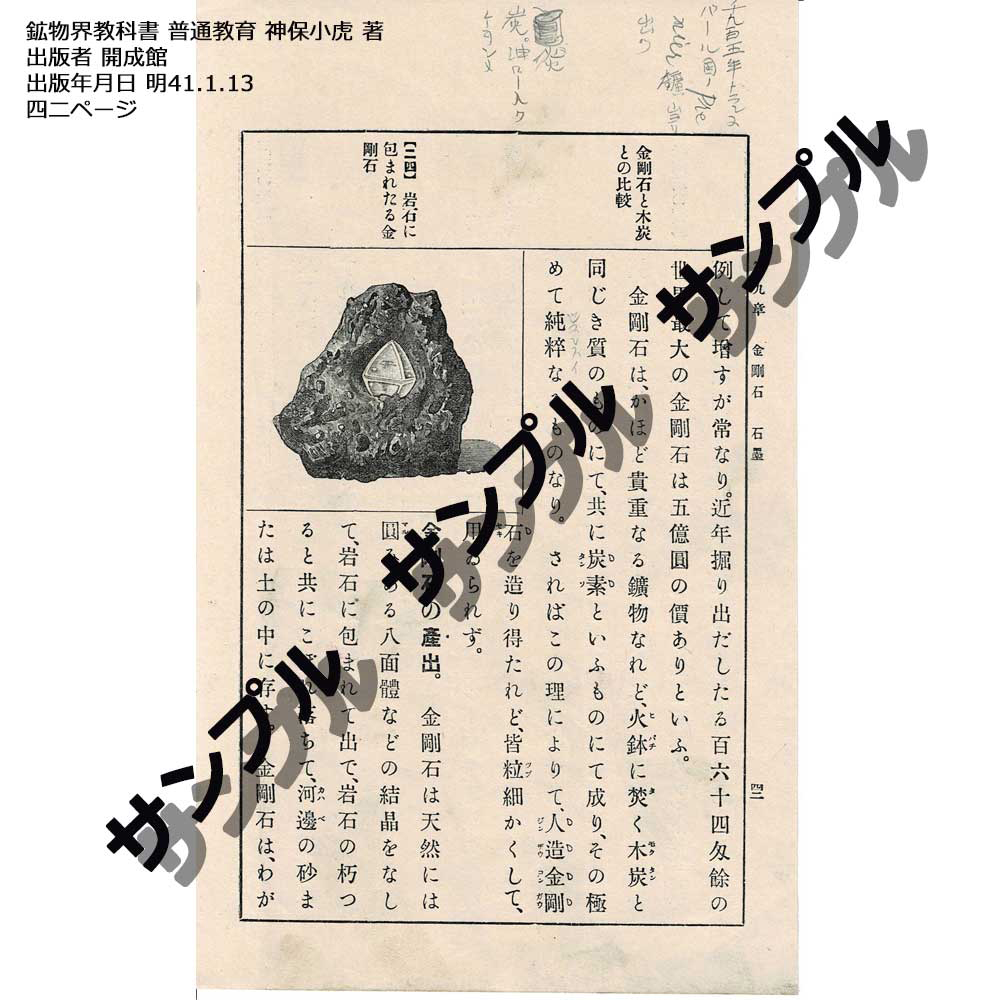 鉱物界教科書 普通教育 神保小虎 著
出版者 開成館
出版年月日 明41.1.13
四二ページ
九章 金剛石 石墨
四二
金剛石と木炭
との比較
【二四】 岩石に
包まれたる金
剛石
例して增すが常なり。近年掘り出だしたる百六十四匁餘の
世界最大の金剛石は五億圓の價ありといふ。
金剛石は、かほど貴重なる鑛物なれど、火鉢に焚く木炭と
同じき質のものにて、共に炭素といふものにて成り、その極
めて純粹なるものなり。 さればこの理によりて、人造金剛
石を造り得たれど、皆粒細かくして、
用ゐられず。
金剛石の產出。 金剛石は天然には
圓みある八面體などの結晶をなし
て、岩石に包まれて出で、岩石の朽つ
ると共にこぼれ落ちて、河邊の砂ま
たは土の中に存す。金剛石は、わが
サンプル
サンプル
サンプル